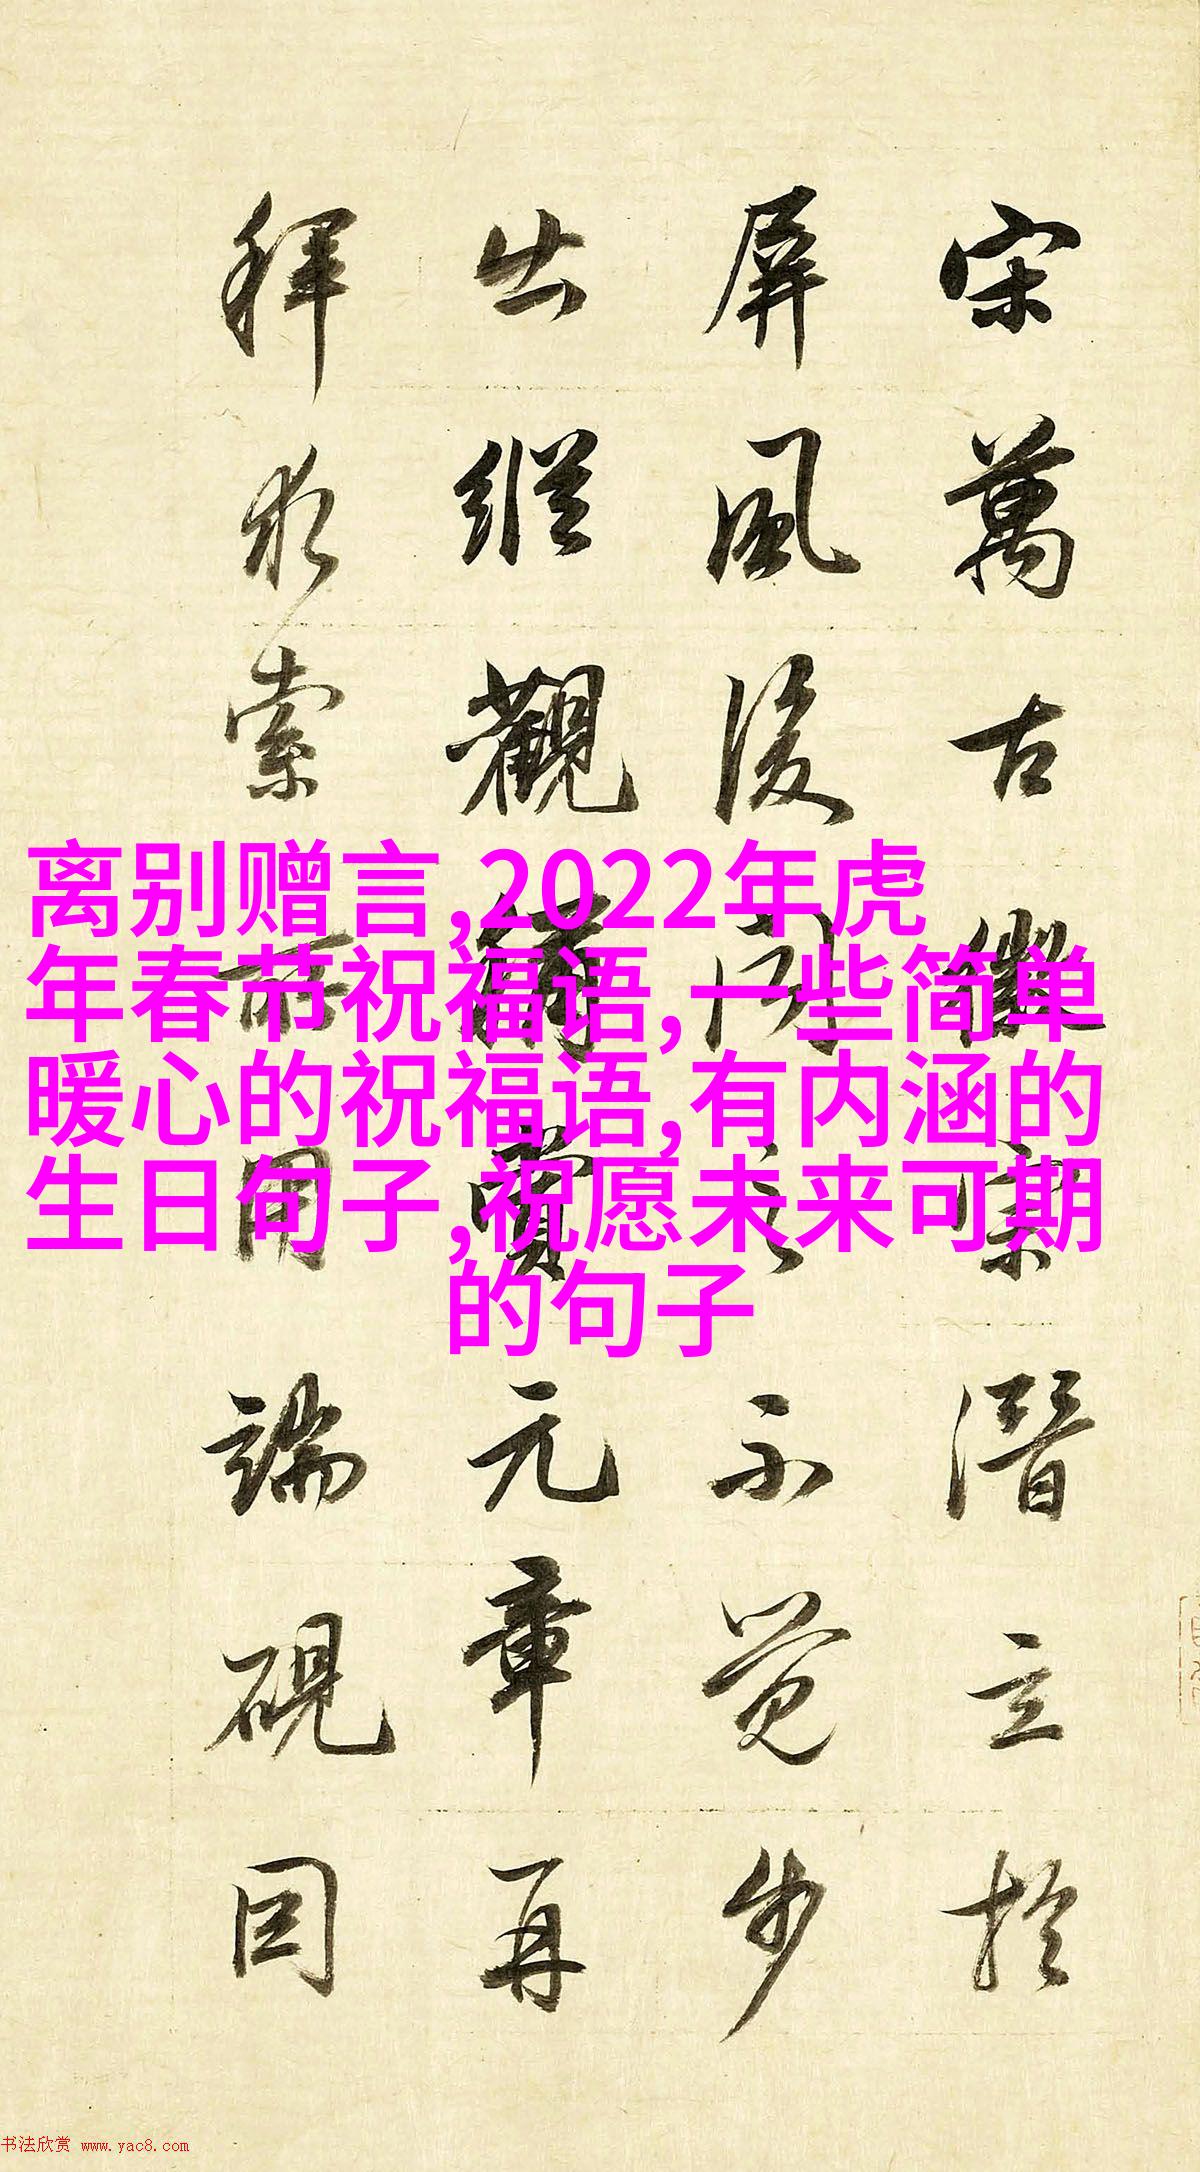 宋萬古徽宗潛立於
屏風後聞之不覺步
出縱觀稱賞元章再
拜求索所用端硯因
离别赠言,2022年虎
年春节祝福语,一些简单
暖心的祝福语,有内涵的
生日句子,祝愿未来可期
的句子
书法欣赏 www.yac8.com